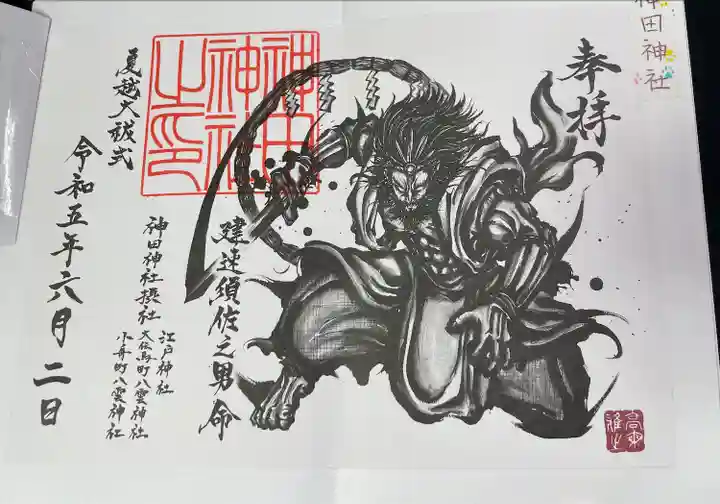 神田神社
奉拝
建速須佐之男命
神田神社之印
神田神社摂社
江戸神社
大伝馬町八雲神社
小舟町八雲神社
夏越大祓式
令和五年六月二日